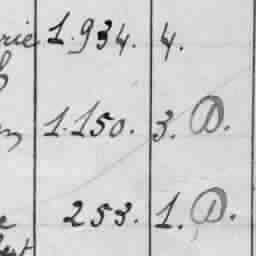 rie 1.934. 4.
1.150. 3. D.
e 253. 1. D.